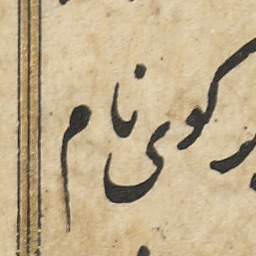 کوی نام